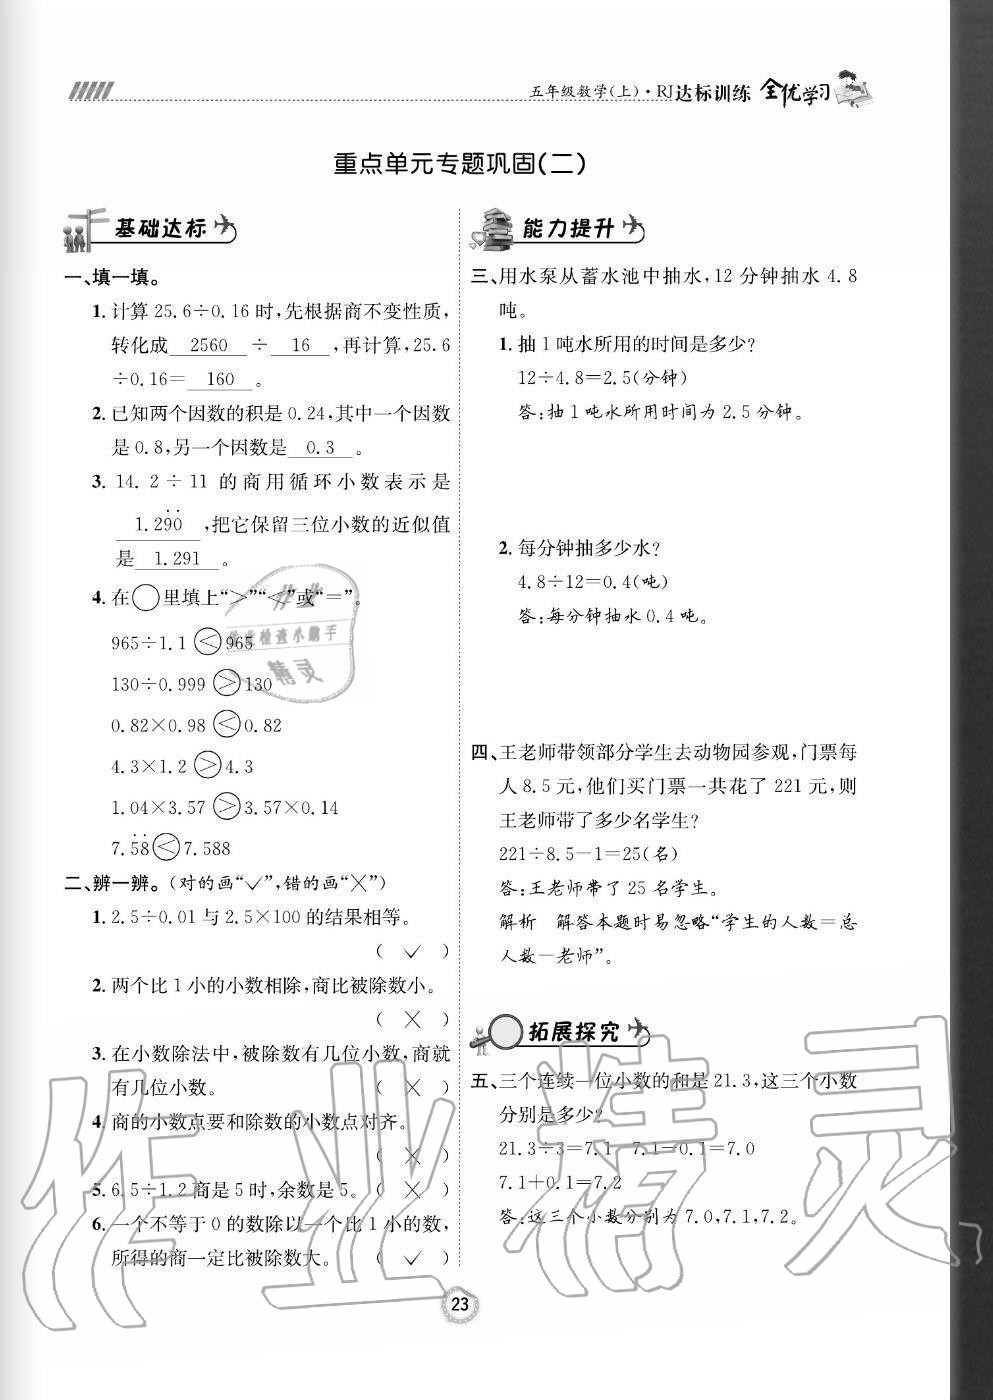 五年级数学(上)·RJ达标训练 全优学习
重点单元专题巩固(二)
基础达标
一、填一填。
1.计算25.6÷0.16时,先根据商不变性质,
转化成 2560 ÷ 16 ,再计算,25.6
÷0.16= 160 。
2.已知两个因数的积是0.24,其中一个因数
是0.8,另一个因数是 0.3 。
3. 14.2÷11的商用循环小数表示是
1.29̇0̇ ,把它保留三位小数的近似值
是 1.291 。
4.在○里填上“>”“<”或“=”。
965÷1.1<965
130÷0.999>130
0.82×0.98<0.82
4.3×1.2>4.3
1.04×3.57>3.57×0.14
7.5̇8̇<7.588
二、辨一辨。(对的画“✓”,错的画“×”)
1.2.5÷0.01与2.5×100的结果相等。
( ✓ )
2.两个比1小的小数相除,商比被除数小。
( × )
3.在小数除法中,被除数有几位小数,商就
有几位小数。 ( × )
4.商的小数点要和除数的小数点对齐。
( × )
5.6.5÷1.2商是5时,余数是5。( × )
6.一个不等于0的数除以一个比1小的数,
所得的商一定比被除数大。 ( ✓ )
能力提升
三、用水泵从蓄水池中抽水,12分钟抽水4.8
吨。
1.抽1吨水所用的时间是多少?
12÷4.8=2.5(分钟)
答:抽1吨水所用时间为2.5分钟。
2.每分钟抽多少水?
4.8÷12=0.4(吨)
答:每分钟抽水0.4吨。
四、王老师带领部分学生去动物园参观,门票每
人8.5元,他们买门票一共花了221元,则
王老师带了多少名学生?
221÷8.5-1=25(名)
答:王老师带了25名学生。
解析 解答本题时易忽略“学生的人数=总
人数-老师”。
拓展探究
五、三个连续一位小数的和是21.3,这三个小数
分别是多少?
21.3÷3=7.1 7.1-0.1=7.0
7.1+0.1=7.2
答:这三个小数分别为7.0,7.1,7.2。
23
作业检查小助手
精灵
作业精灵